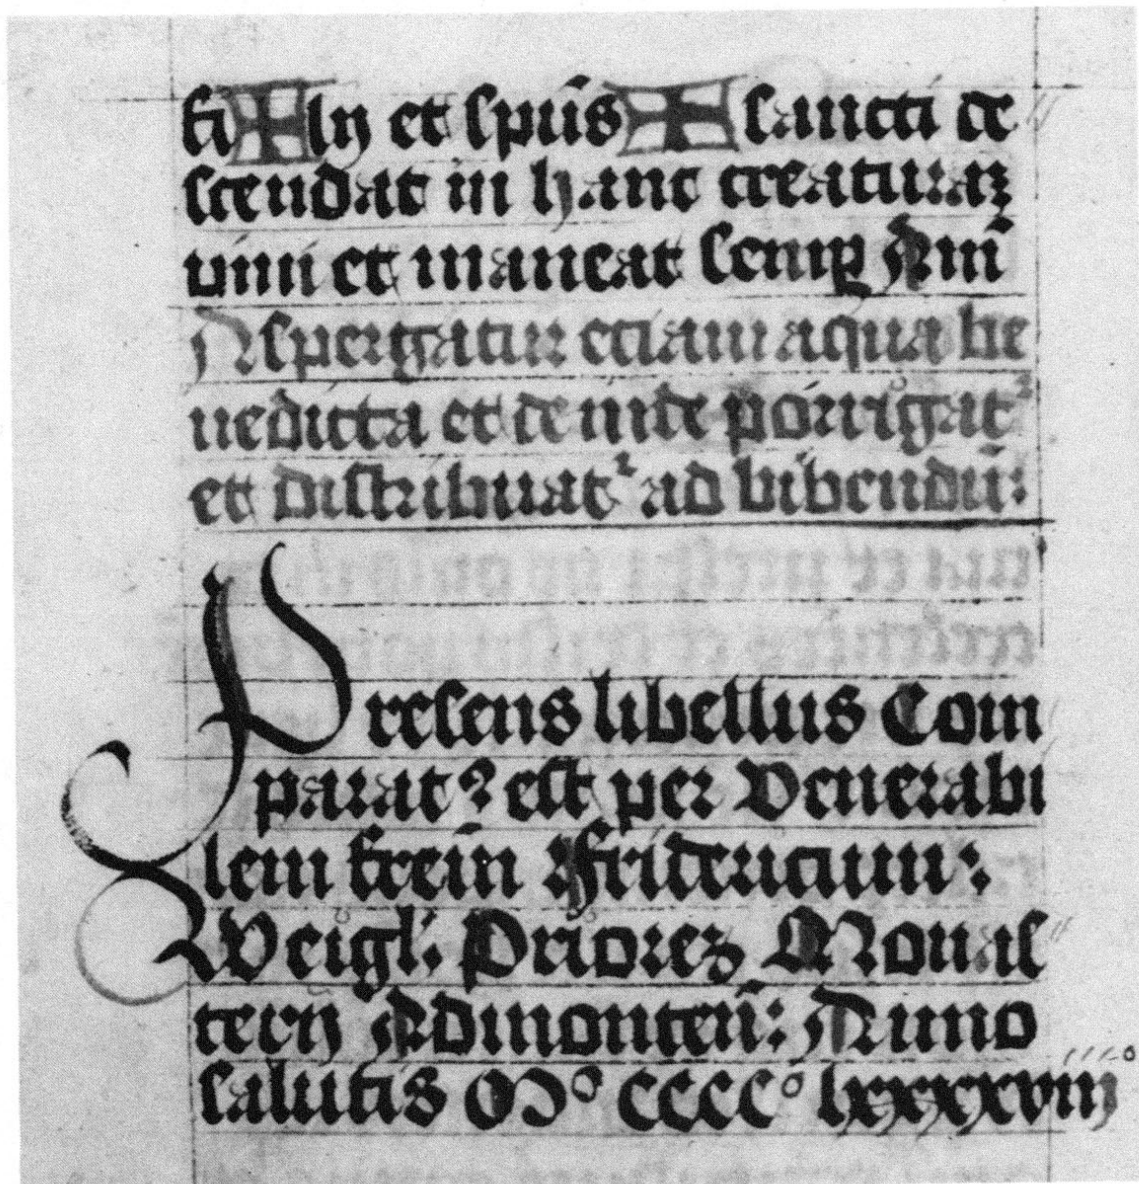 fi ✠ lij et spūs ✠ sancti de
scendat in hanc creaturaꝫ
vini et maneat semꝑ Am̄
Aspergatur eciam aqua be
nedicta et de inde porrigat᷑
et distribuat᷑ ad bibendū:
Presens libellus Com
parat᷑ est per Venerabi
lem frēm Fridericum:
Weigl: Prioreꝫ Monas
terij Admonteñ: Anno
salutis Mº CCCCº lxxxxviijº